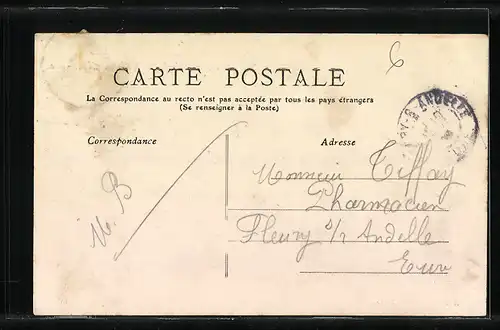 6
CARTE POSTALE
La Correspondance au recto n'est pas acceptée par tous les pays étrangers
(Se renseigner à la Poste)
Correspondance
Adresse
M. B
Monsieur Tiffay
Pharmacien
Fleury s/r Andelle
Eure
Y-S-ANDELLE